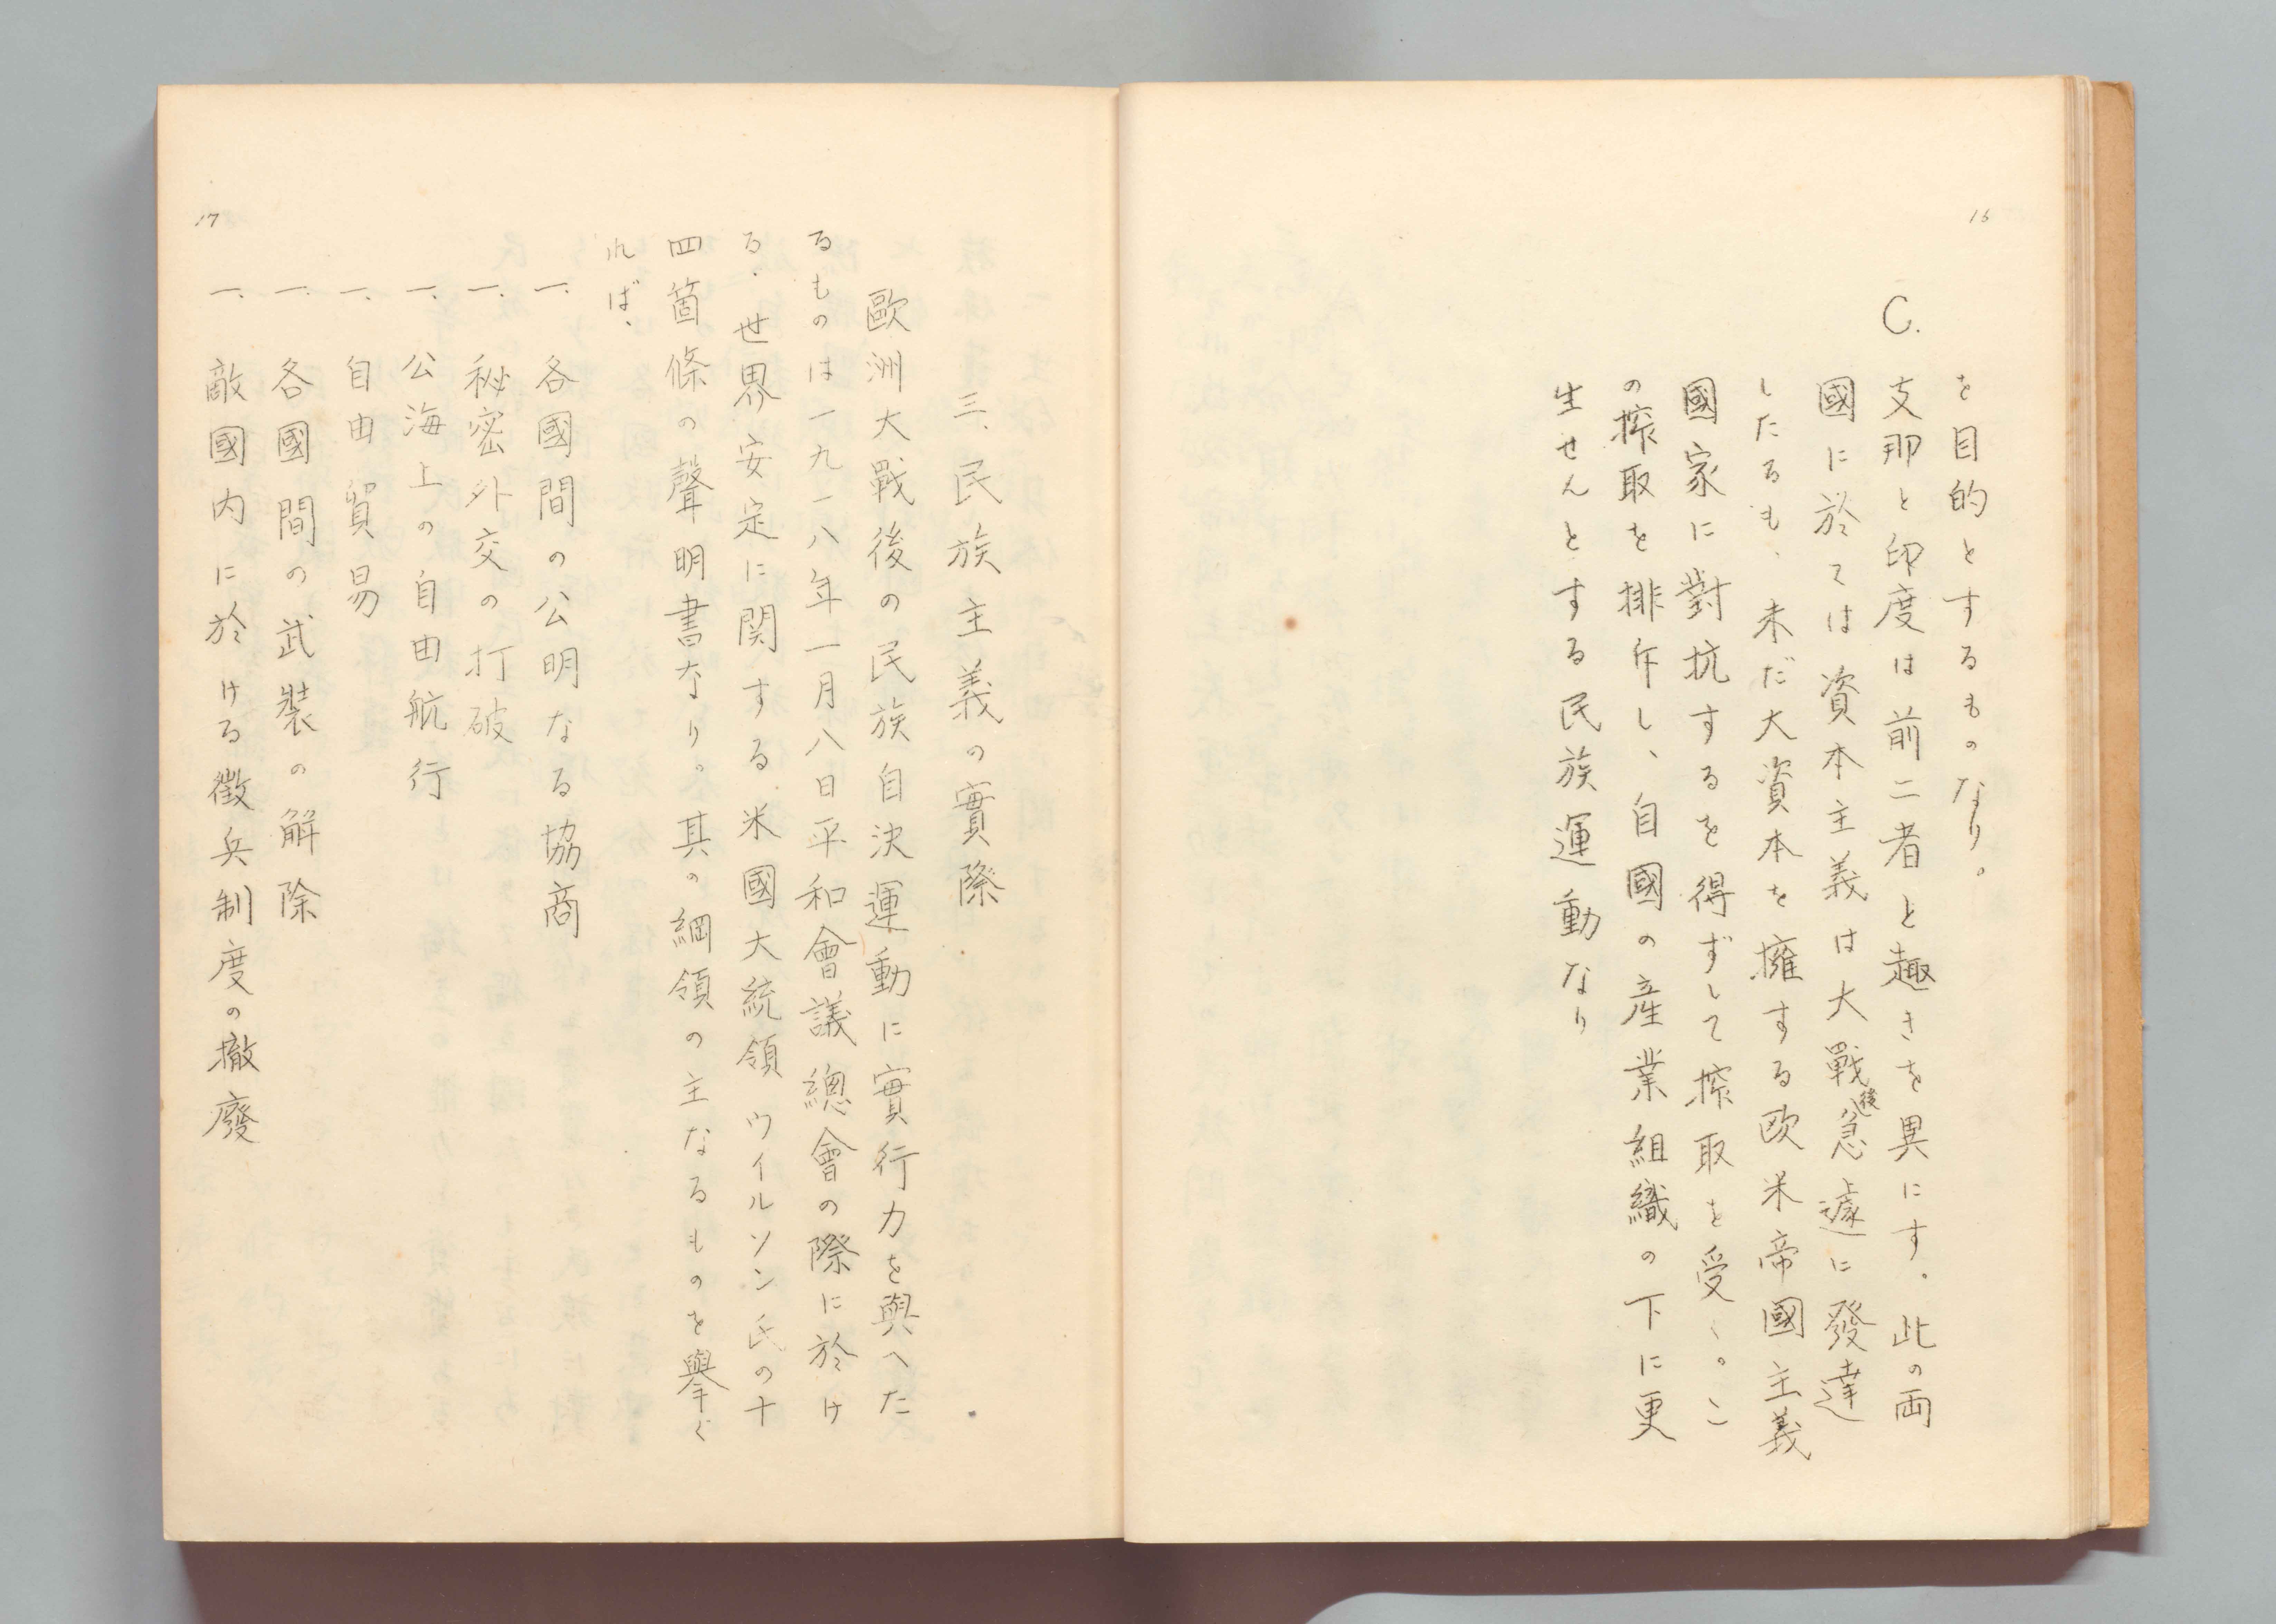 16
を目的とするものなり。
C. 支那と印度は前二者と趣きを異にす。此の両
國に於ては資本主義は大戰後急遽に發達
したるも、未だ大資本を擁する欧米帝國主義
國家に對抗するを得ずして搾取を受く。こ
の搾取を排斥し、自國の産業組織の下に更
生せんとする民族運動なり
三、民族主義の實際
歐洲大戰後の民族自決運動に實行力を與へた
るものは一九一八年一月八日平和會議總會の際に於け
る、世界安定に関する米國大統領ウイルソン氏の十
四箇條の聲明書なり。其の綱領の主なるものを擧ぐ
れば、
一、各國間の公明なる協商
一、秘密外交の打破
一、公海上の自由航行
一、自由貿易
一、各國間の武裝の解除
一、敵國内に於ける徵兵制度の撤廢
17